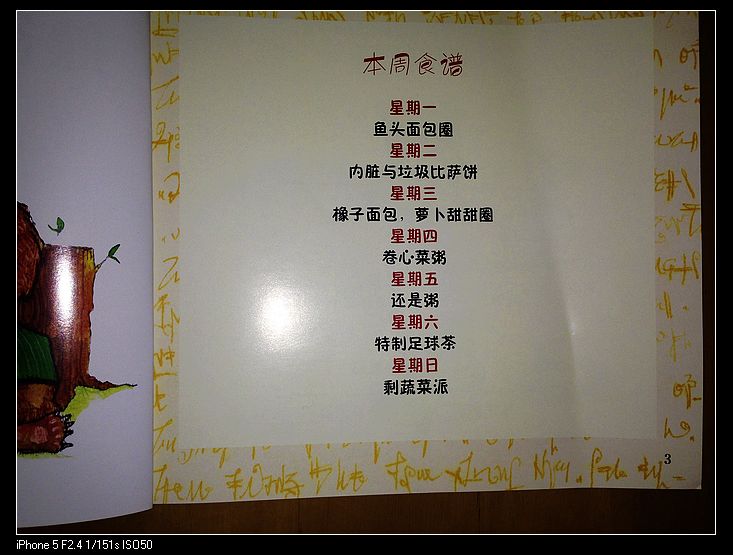 本周食谱
星期一
鱼头面包圈
星期二
内脏与垃圾比萨饼
星期三
橡子面包，萝卜甜甜圈
星期四
卷心菜粥
星期五
还是粥
星期六
特制足球茶
星期日
剩蔬菜派
3
iPhone 5 F2.4 1/151s ISO50